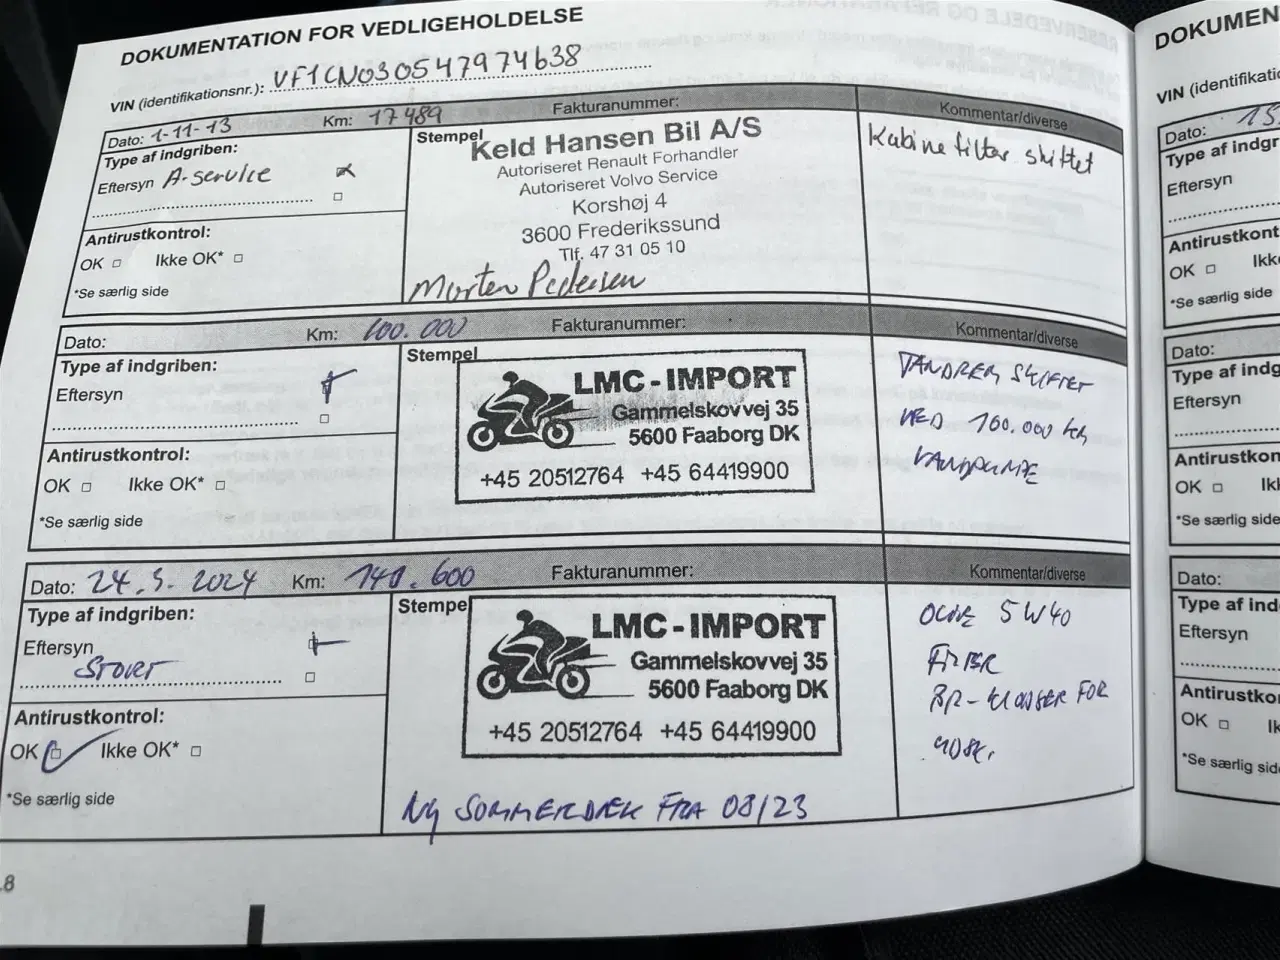 DOKUMENTATION FOR VEDLIGEHOLDELSE
VIN (identifikationsnr.): VF1CN030547974638
Dato: 1-11-13 Km: 17489 Fakturanummer: Kommentar/diverse
Type af indgriben:
Eftersyn A-service
Antirustkontrol:
OK Ikke OK*
*Se særlig side
Stempel
Keld Hansen Bil A/S
Autoriseret Renault Forhandler
Autoriseret Volvo Service
Korshøj 4
3600 Frederikssund
Tlf. 47 31 05 10
Morten Pedersen
Kabinefilter skiftet
Dato: Km: 100.000 Fakturanummer: Kommentar/diverse
Type af indgriben:
Eftersyn
Antirustkontrol:
OK Ikke OK*
*Se særlig side
Stempel
LMC-IMPORT
Gammelskovvej 35
5600 Faaborg DK
+45 20512764 +45 64419900
TANDREM SKIFTET
VED 100.000 km
VANDPUMPE
Dato: 24.5.2024 Km: 140.600 Fakturanummer: Kommentar/diverse
Type af indgriben:
Eftersyn
STORT
Antirustkontrol:
OK Ikke OK*
*Se særlig side
Stempel
LMC-IMPORT
Gammelskovvej 35
5600 Faaborg DK
+45 20512764 +45 64419900
NY SOMMERDÆK FRA 08/23
OLIE 5W40
FILTER
BR-KLODSER FOR
8
DOKUMEN
VIN (identifikati
Dato: 15
Type af indgr
Eftersyn
Antirustkont
OK Ikk
*Se særlig side
Dato:
Type af indg
Eftersyn
Antirustkon
OK Ik
*Se særlig sid
Dato:
Type af ind
Eftersyn
Antirustko
OK I
*Se særlig sid